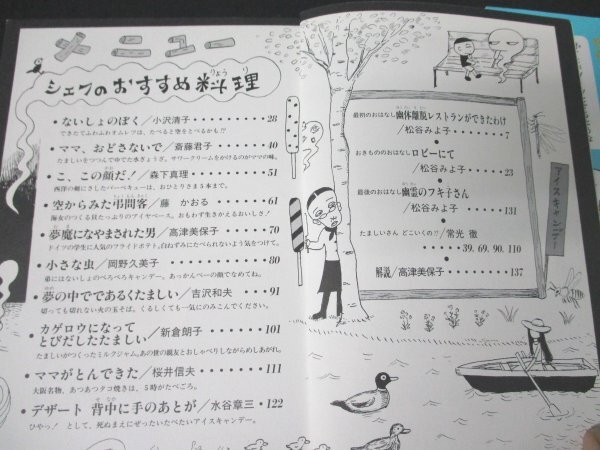 メニュー
シェフのおすすめ料理
りょうり
• ないしょのぼく／小沢清子 28
できたてふわふわオムレツは、たべると空をとべるかも!?
• ママ、おどさないで／斎藤君子 40
たましいをつつんでゆでた水ぎょうざ。サワークリームをかけるのがママの味。
• こ、この顔だ！／森下真理 51
西洋の剣にさしたバーベキューは、おひとりさま5本まで。
• 空からみた弔問客／藤 かおる 61
海女のつくる貝たっぷりのブイヤベース。おもわず生きかえるおいしさ！
• 夢魔になやまされた男／高津美保子 70
ドイツの学生に人気のフライドポテト。白ねずみにたべられないよう気をつけて。
• 小さな虫／岡野久美子 80
弟にはないしょのぺろぺろキャンデー。あっかんべーの顔でなめてね。
• 夢の中でであるくたましい／吉沢和夫 91
切っても切れない火の玉そば。くるしくても一気にのみこんでください。
• カゲロウになって
とびだしたたましい／新倉朗子 101
たましいがつくったミルクジャム。あの世の親友とおしゃべりしながらめしあがれ。
• ママがとんできた／桜井信夫 111
大阪名物、あつあつタコ焼きは、5時がたべごろ。
• デザート 背中に手のあとが／水谷章三 122
ひやっ！ として、死ぬまえにぜったいたべたいアイスキャンデー。
最初のおはなし 幽体離脱レストランができたわけ
／松谷みよ子 7
おきもののおはなし ロビーにて
／松谷みよ子 23
最後のおはなし 幽霊のフキ子さん
／松谷みよ子 131
たましいさん どこいくの!?／常光 徹
39. 69. 90. 110
解説／高津美保子 137
アイスキャンデー